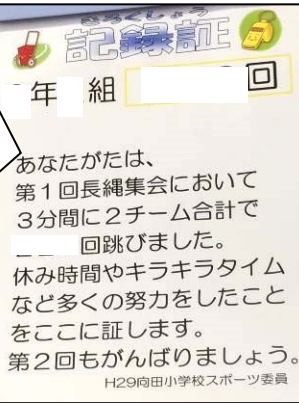 きろくしょう
記録証
年 組 回
あなたがたは、
第1回長縄集会において
3分間に2チーム合計で
回跳びました。
休み時間やキラキラタイム
など多くの努力をしたこと
をここに証します。
第2回もがんばりましょう。
H29向田小学校スポーツ委員